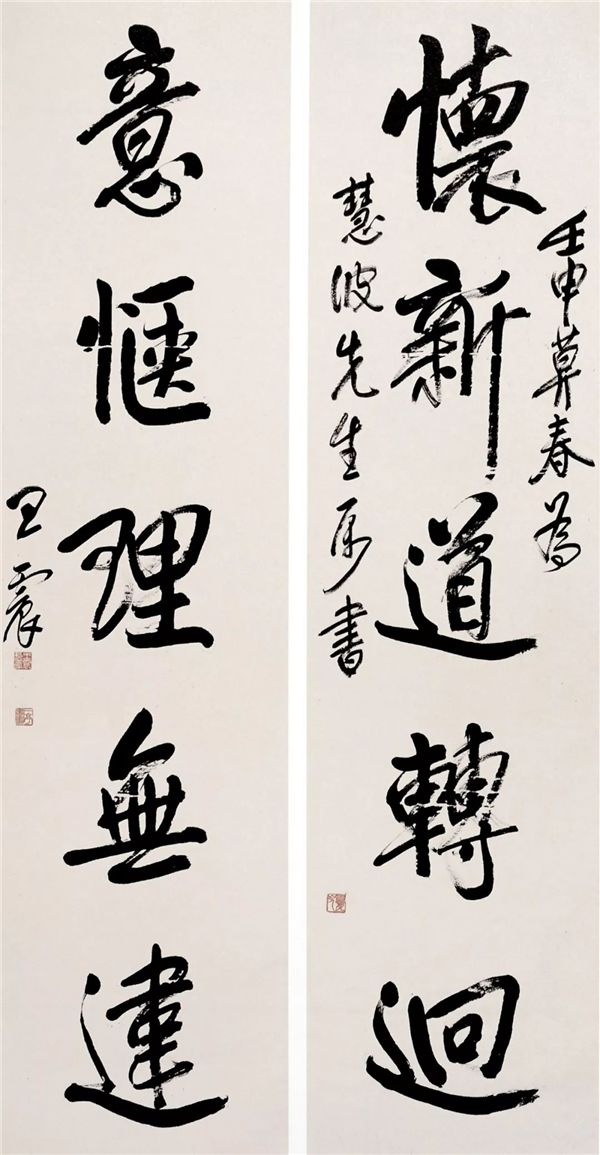 壬申莫春為
懷新道轉迥
慧波先生属書
意愜理無違
王震